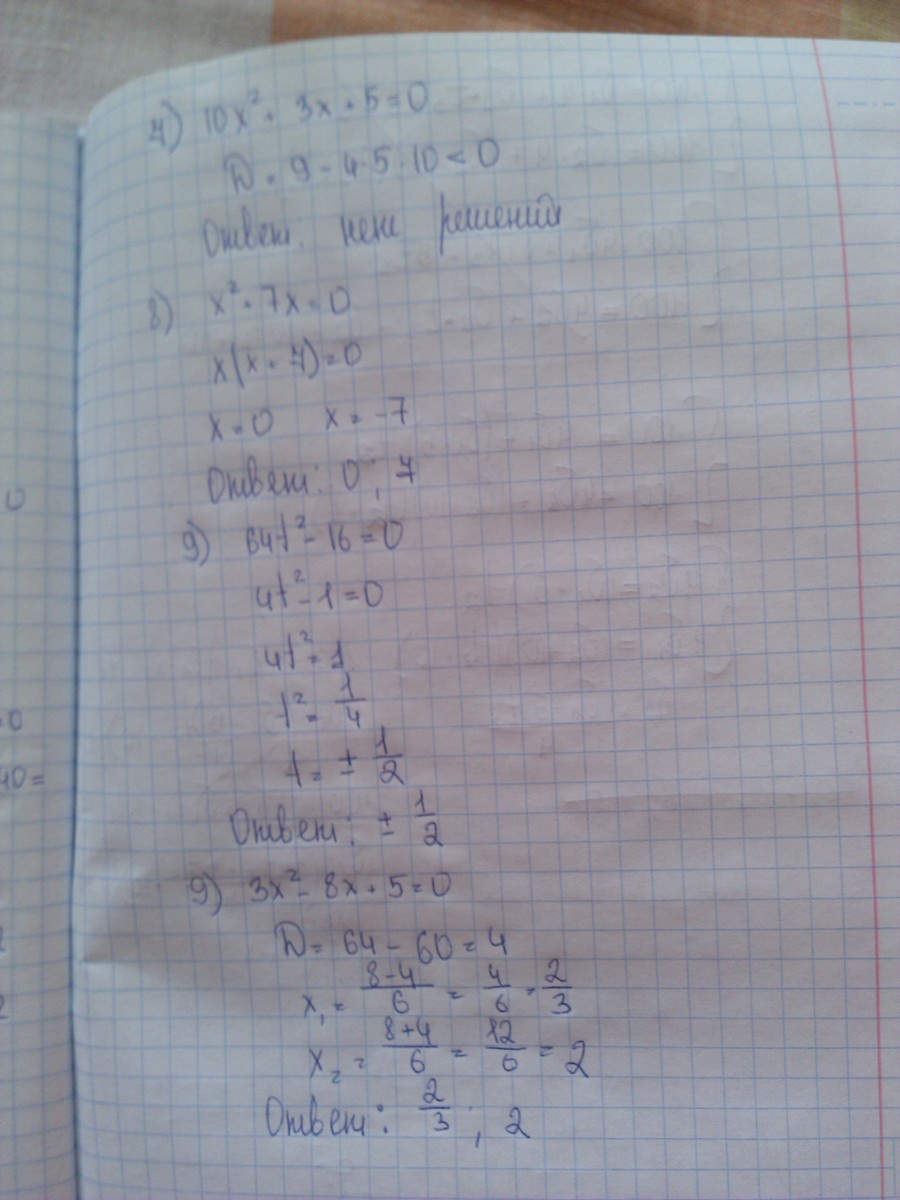 7) 10x² + 3x + 5 = 0
D = 9 - 4·5·10 < 0
Ответ: нет решений
8) x² + 7x = 0
x(x + 7) = 0
x = 0 x = -7
Ответ: 0 ; 7
9) 64t² - 16 = 0
4t² - 1 = 0
4t² = 1
t² = 1/4
t = ± 1/2
Ответ: ± 1/2
9) 3x² - 8x + 5 = 0
D = 64 - 60 = 4
x₁ = (8-4)/6 = 4/6 = 2/3
x₂ = (8+4)/6 = 12/6 = 2
Ответ: 2/3 ; 2
0
40 =